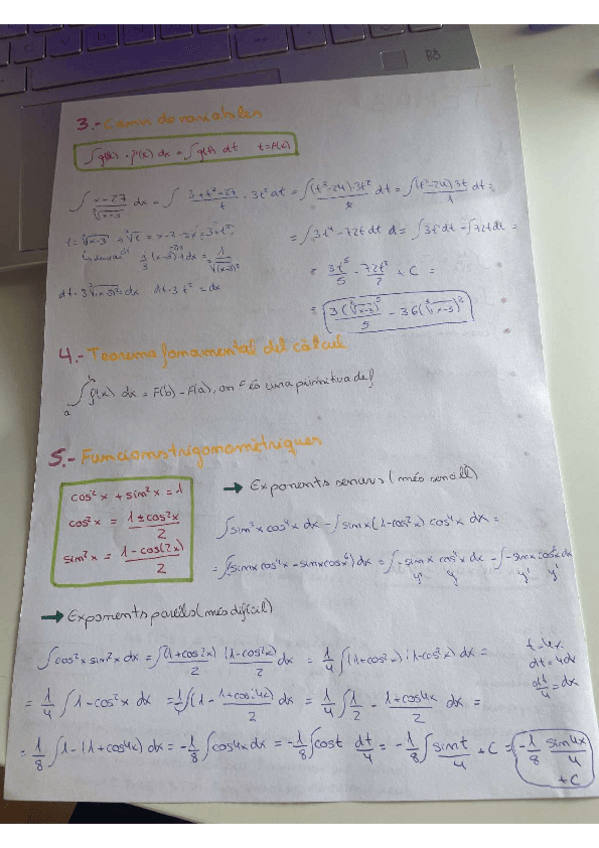 3.- Canvi de variables
∫g(f(x)) · f'(x) dx = ∫g(t) dt   t = f(x)
∫ (x-27)/∛(x-3) dx = ∫ (3+t³-27)/t · 3t² dt = ∫ (t³-24)·3t²/t dt = ∫ (t³-24)3t/1 dt =
t = ∛(x-3) → t³ = x-3 → x = 3+t³
= ∫3t⁴ - 72t dt = ∫3t⁴ dt - ∫72t dt =
dt · 3∛(x-3)² = dx   dt · 3t² = dx
= 3t⁵/5 - 72t²/2 + C =
= 3(∛(x-3))⁵/5 - 36(∛(x-3))²
4.- Teorema fonamental del càlcul
∫ₐᵇ f(x) dx = F(b) - F(a), on F és una primitiva de f
5.- Funcions trigonomètriques
cos²x + sin²x = 1
cos²x = (1+cos2x)/2
sin²x = (1-cos(2x))/2
→ Exponents senars (més senzill)
∫sin³x cos⁴x dx = ∫sinx(1-cos²x) cos⁴x dx =
= ∫(sinx cos⁴x - sinx cos⁶x) dx = ∫-sinx cos⁴x dx - ∫-sinx cos⁶x dx
→ Exponents parells (més difícil)
∫cos²x sin²x dx = ∫ (1+cos2x)/2 (1-cos2x)/2 dx = 1/4 ∫(1+cos2x)(1-cos2x) dx =
t = 4x
dt = 4dx
dt/4 = dx
= 1/4 ∫1-cos²x dx = 1/4 ∫(1 - (1+cos(4x))/2) dx = 1/4 ∫ 1/2 - (1+cos4x)/2 dx =
= 1/8 ∫1-(1+cos4x) dx = -1/8 ∫cos4x dx = -1/8 ∫cost dt/4 = -1/8 ∫ sint/4 + C = -1/8 sin4x/4 + C